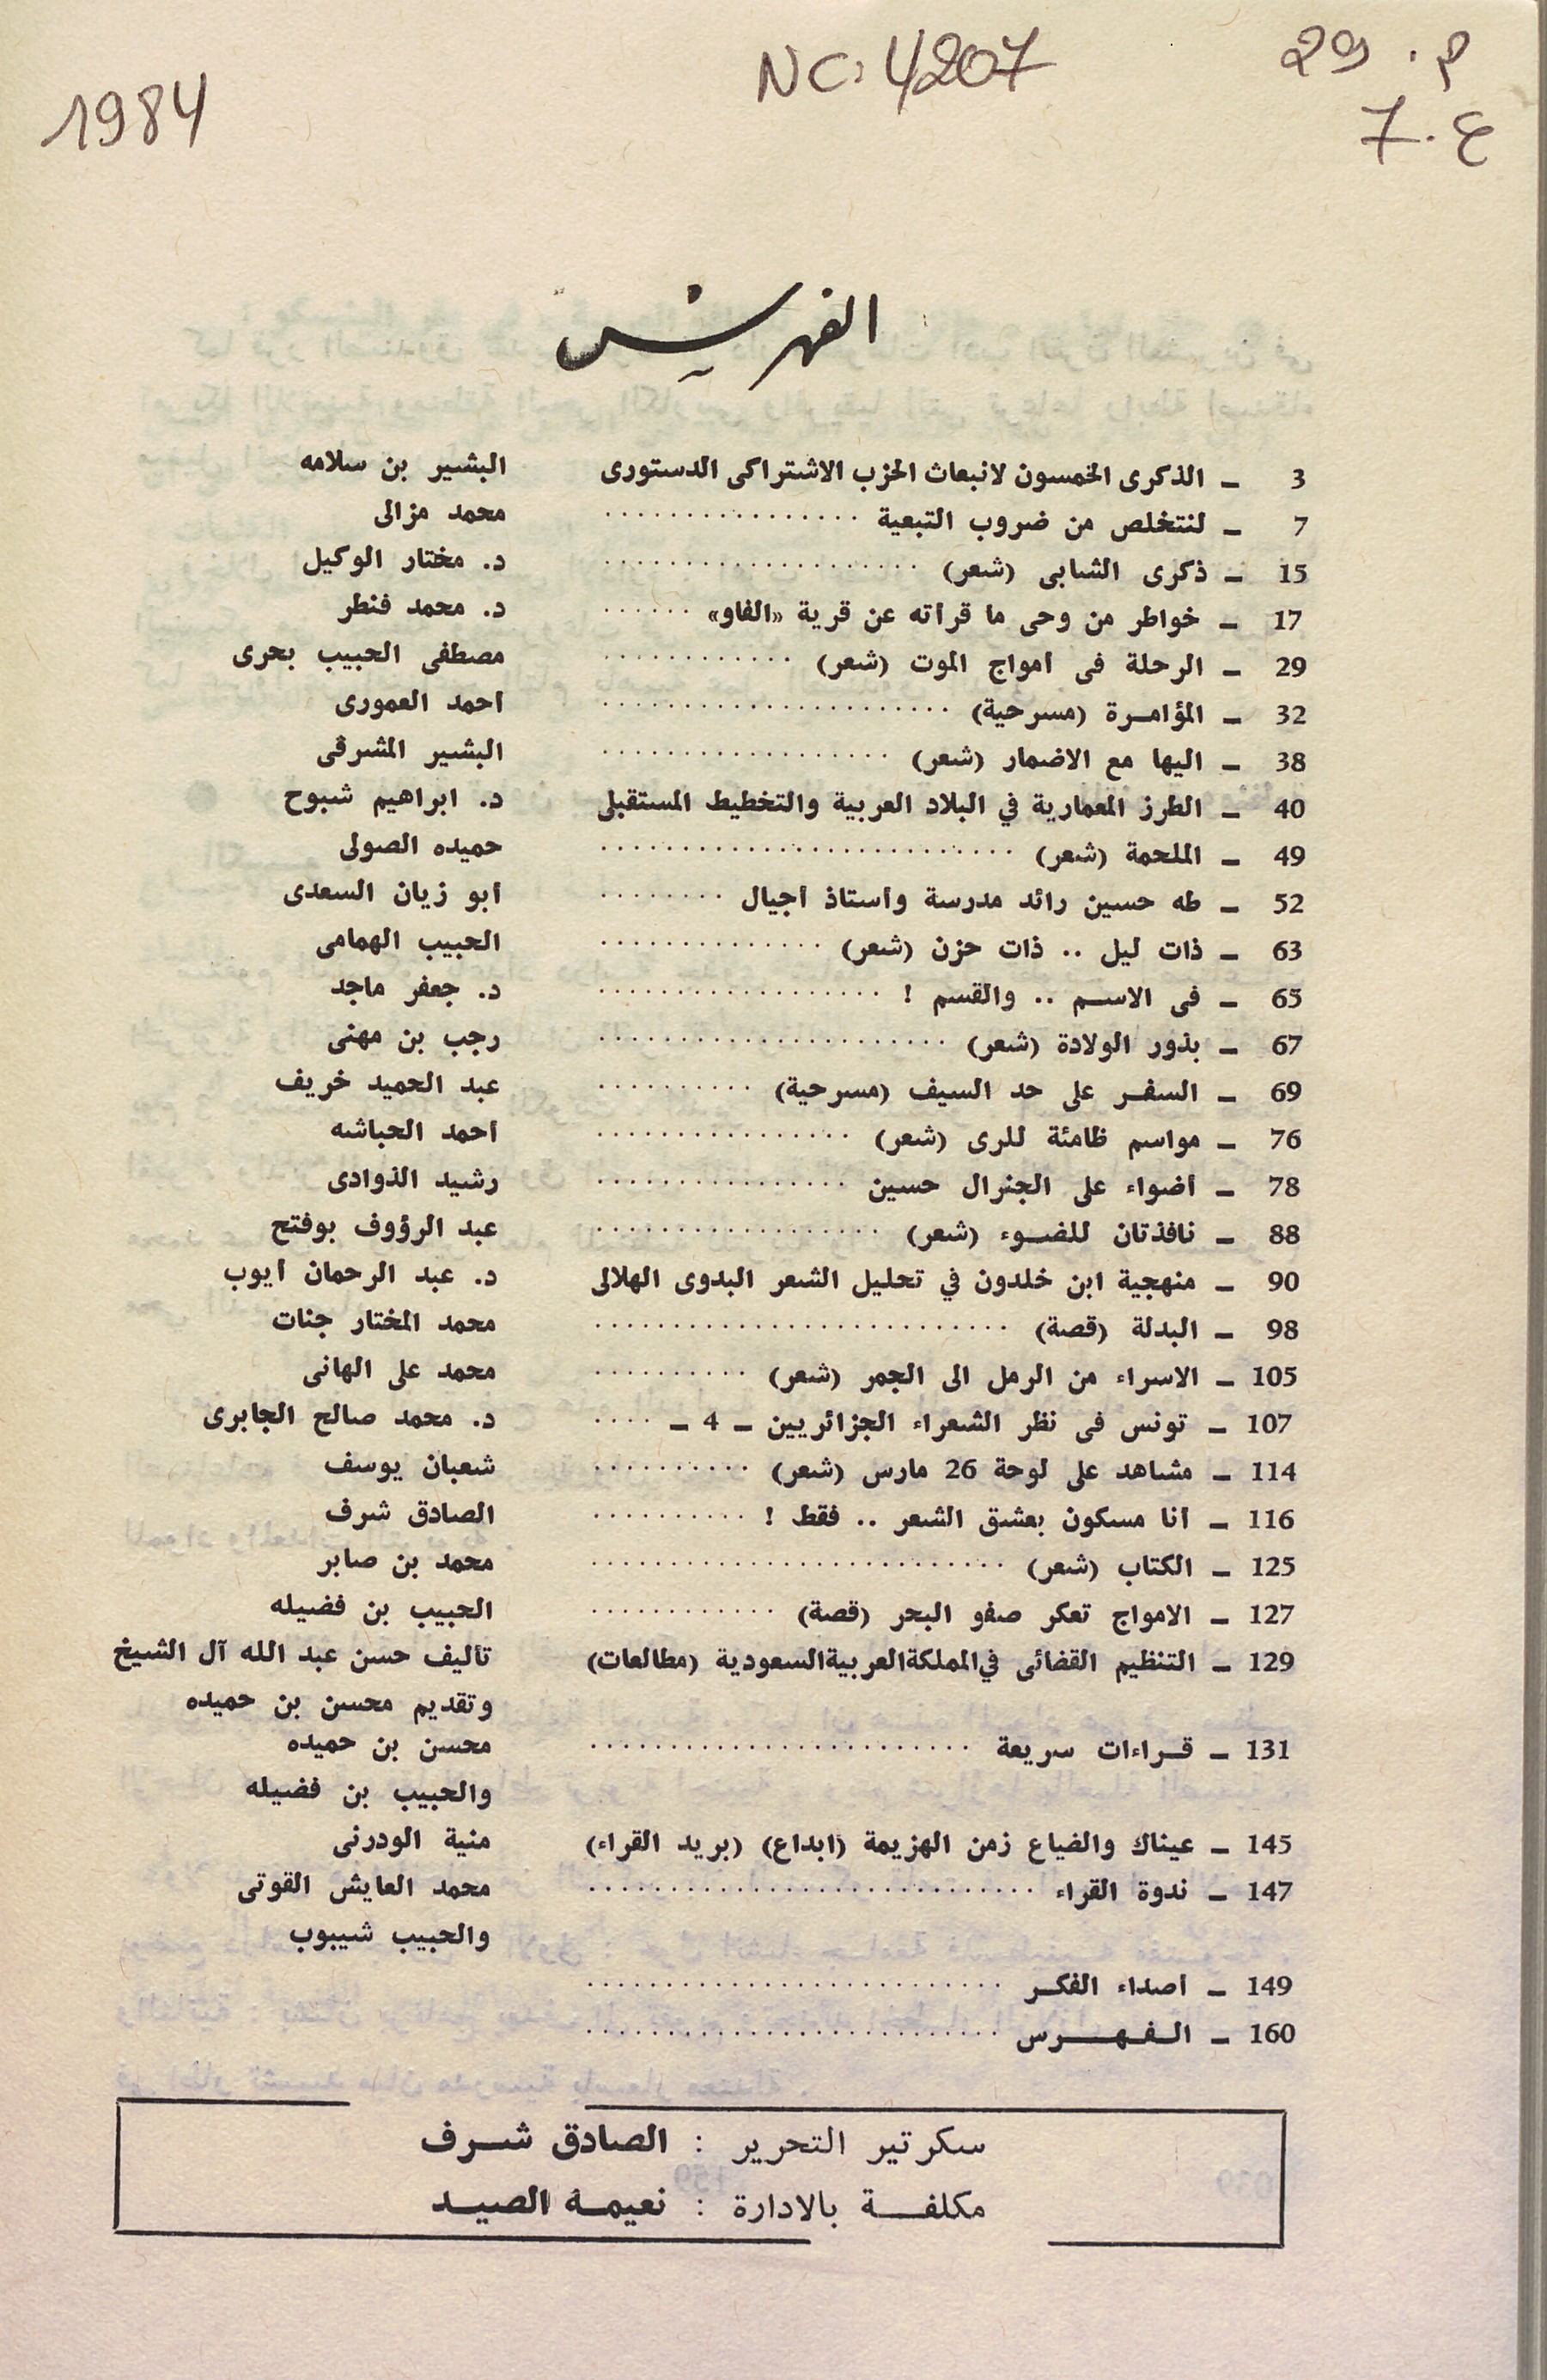 م . 29
ع . 7
NC: 4207
1984
الفهرس
3 ـ الذكرى الخمسون لانبعاث الحزب الاشتراكى الدستورى البشير بن سلامه
7 ـ لنتخلص من ضروب التبعية ................ محمد مزالى
15 ـ ذكرى الشابى (شعر) .................... د. مختار الوكيل
17 ـ خواطر من وحى ما قرأته عن قرية «الفاو» ...... د. محمد فنطر
29 ـ الرحلة فى أمواج الموت (شعر) ............ مصطفى الحبيب بحرى
32 ـ المؤامـرة (مسرحية) ...................... أحمد العمورى
38 ـ اليها مع الاضمار (شعر) .................. البشير المشرقى
40 ـ الطرز المعمارية في البلاد العربية والتخطيط المستقبلى د. ابراهيم شبوح
49 ـ الملحمة (شعر) .......................... حميده الصولى
52 ـ طه حسين رائد مدرسة وأستاذ أجيال ........ أبو زيان السعدى
63 ـ ذات ليل .. ذات حزن (شعر) .............. الحبيب الهمامى
65 ـ فى الاسـم .. والقسم ! .................. د. جعفر ماجد
67 ـ بذور الولادة (شعر) ...................... رجب بن مهنى
69 ـ السفـر على حد السيف (مسرحية) .......... عبد الحميد خريف
76 ـ مواسم ظامئة للرى (شعر) ................ أحمد الحباشه
78 ـ أضواء على الجنرال حسين ................ رشيد الذوادى
88 ـ نافذتان للضـوء (شعر) .................. عبد الرؤوف بوفتح
90 ـ منهجية ابن خلدون في تحليل الشعر البدوى الهلالى د. عبد الرحمان أيوب
98 ـ البدلة (قصة) .......................... محمد المختار جنات
105 ـ الاسراء من الرمل الى الجمر (شعر) .......... محمد على الهانى
107 ـ تونس فى نظر الشعراء الجزائريين ـ 4 ـ .... د. محمد صالح الجابرى
114 ـ مشاهد على لوحة 26 مارس (شعر) .......... شعبان يوسف
116 ـ أنا مسكون بعشق الشعر .. فقط ! .......... الصادق شرف
125 ـ الكتاب (شعر) .......................... محمد بن صابر
127 ـ الامواج تعكر صفو البحر (قصة) ............ الحبيب بن فضيله
129 ـ التنظيم القضائى في المملكة العربية السعودية (مطالعات) تأليف حسن عبد الله آل الشيخ
وتقديم محسن بن حميده
131 ـ قـراءات سريعة ........................ محسن بن حميده
والحبيب بن فضيله
145 ـ عيناك والضياع زمن الهزيمة (ابداع) (بريد القراء) منية الودرنى
147 ـ ندوة القراء ............................ محمد العايش القوتى
والحبيب شيبوب
149 ـ أصداء الفكـر ..........................
160 ـ الـفـهـــرس ..........................
سكرتير التحرير : الصادق شـرف
مكلفـة بالادارة : نعيمـة الصيـد